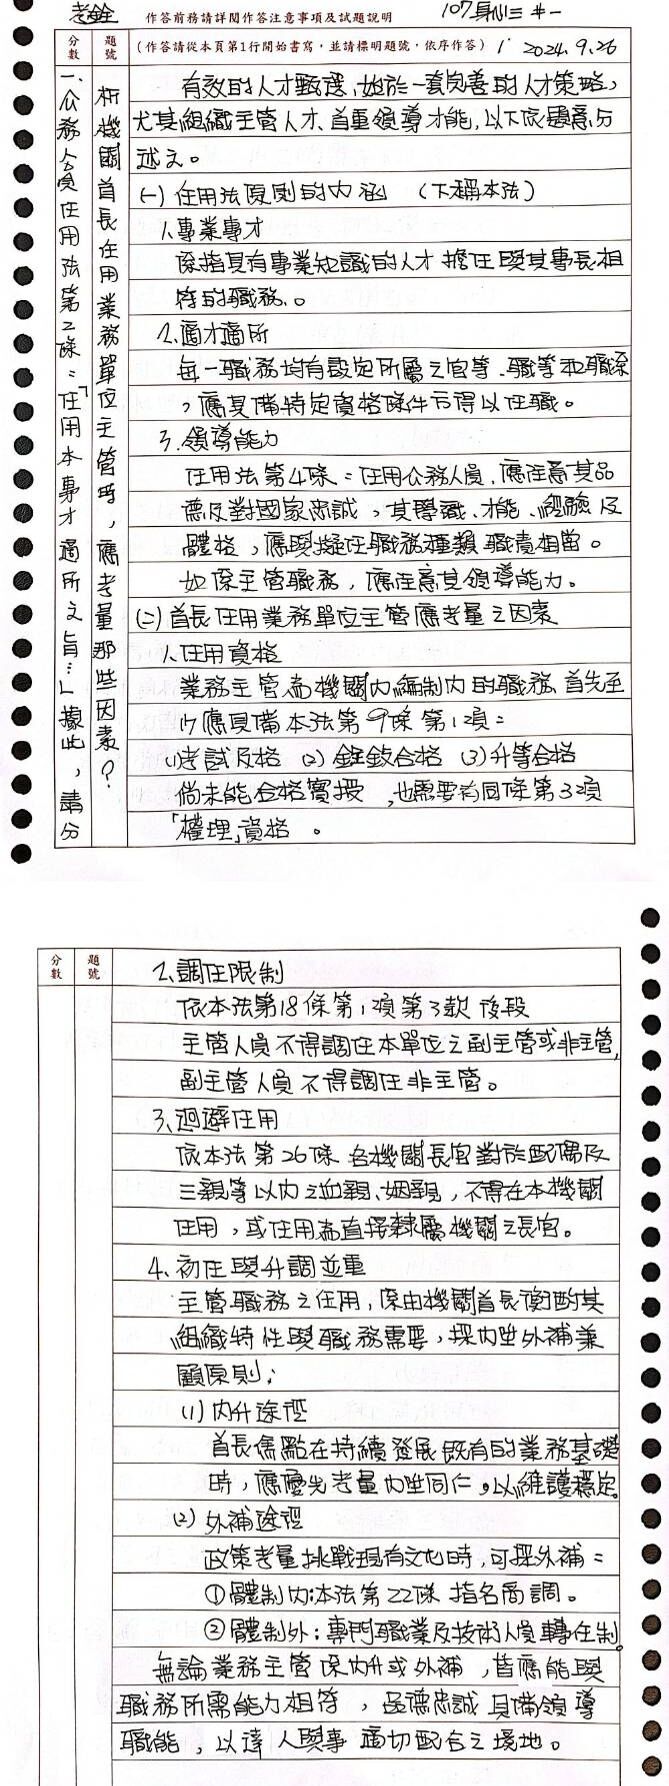 老銓
作答前務請詳閱作答注意事項及試題說明
107身心三 #一
分數
題號
(作答請從本頁第1行開始書寫，並請標明題號，依序作答)
1
2024.9.26
一、公務人員任用法第2條：「任用本專才適所之旨…」據此，請分
析機關首長任用業務單位主管時，應考量那些因素？
有效的人才甄選，始於一套完善的人才策略，
尤其組織主管人才、首重領導才能，以下依題意分
述之。
(一) 任用法原則的內涵 (下稱本法)
1.專業專才
係指具有專業知識的人才擔任與其專長相
符的職務。
2.適才適所
每一職務均有設定所屬之官等、職等和職系
，應具備特定資格條件方得以任職。
3.領導能力
任用法第4條：任用公務人員，應注意其品
德及對國家忠誠，其學識、才能、經驗及
體格，應與擬任職務種類職責相當。
如係主管職務，應注意其領導能力。
(二) 首長任用業務單位主管應考量之因素
1.任用資格
業務主管為機關內編制內的職務，首先至
少應具備本法第9條第1項：
(1)考試及格 (2)銓敘合格 (3)升等合格
倘未能合格實授，也需要有同條第3項
「權理」資格。
分數
題號
2.調任限制
依本法第18條第1項第3款後段
主管人員不得調任本單位之副主管或非主管，
副主管人員不得調任非主管。
3.迴避任用
依本法第26條各機關長官對於配偶及
三親等以內之血親、姻親，不得在本機關
任用，或任用為直接隸屬機關之長官。
4.初任與升調並重
主管職務之任用，係由機關首長衡酌其
組織特性與職務需要，採內陞外補兼
顧原則；
(1)內升途徑
首長偏點在持續發展既有的業務基礎
時，應優先考量內陞同仁，以維護穩定。
(2)外補途徑
政策考量挑戰現有文化時，可採外補：
①體制內：本法第22條指名商調。
②體制外：專門職業及技術人員轉任制。
無論業務主管係內升或外補，皆應能與
職務所需能力相符，品德忠誠具備領導
職能，以達人與事適切配合之境地。